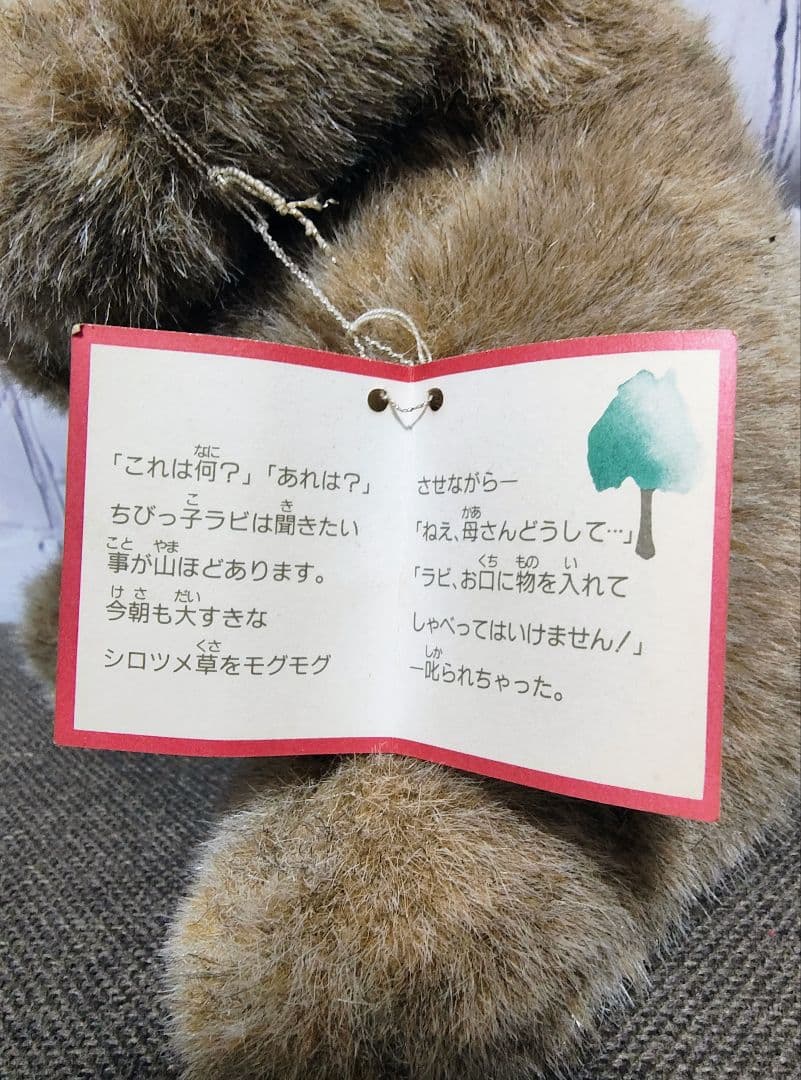 「これは何？」「あれは？」
ちびっ子ラビは聞きたい
事が山ほどあります。
今朝も大すきな
シロツメ草をモグモグ
させながらー
「ねえ、母さんどうして…」
「ラビ、お口に物を入れて
しゃべってはいけません！」
ー叱られちゃった。